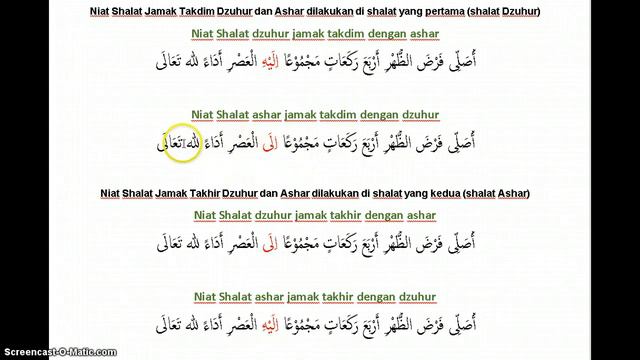 Niat Shalat Jamak Takdim Dzuhur dan Ashar dilakukan di shalat yang pertama (shalat Dzuhur)
Niat Shalat dzuhur jamak takdim dengan ashar
أُصَلِّى فَرْضَ الظُّهْرِ أَرْبَعَ رَكَعَاتٍ مَجْمُوْعًا اِلَيْهِ الْعَصْرِ أَدَاءً لله تَعَالَى
Niat Shalat ashar jamak takdim dengan dzuhur
أُصَلِّى فَرْضَ الظُّهْرِ أَرْبَعَ رَكَعَاتٍ مَجْمُوْعًا اِلَى الْعَصْرِ أَدَاءً لله تَعَالَى
Niat Shalat Jamak Takhir Dzuhur dan Ashar dilakukan di shalat yang kedua (shalat Ashar)
Niat Shalat dzuhur jamak takhir dengan ashar
أُصَلِّى فَرْضَ الظُّهْرِ أَرْبَعَ رَكَعَاتٍ مَجْمُوْعًا اِلَى الْعَصْرِ أَدَاءً لله تَعَالَى
Niat Shalat ashar jamak takhir dengan dzuhur
أُصَلِّى فَرْضَ الظُّهْرِ أَرْبَعَ رَكَعَاتٍ مَجْمُوْعًا اِلَيْهِ الْعَصْرِ أَدَاءً لله تَعَالَى
Screencast-O-Matic.com